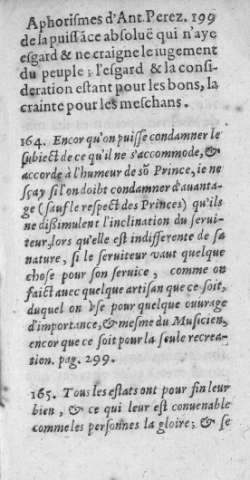 Aphorismes d'Ant. Perez. 199
de la puissãce absoluë qui n'aye
esgard & ne craigne le iugement
du peuple; l'esgard & la consi-
deration estant pour les bons, la
crainte pour les meschans.
164. Encor qu'on puisse condamner le
subiect de ce qu'il ne s'accommode, &
accorde à l'humeur de sõ Prince, ie ne
sçay si l'on doibt condamner d'auanta-
ge (sauf le respect des Princes) qu'ils
ne dißimulent l'inclination du serui-
teur, lors qu'elle est indifferente de sa
nature, si le seruiteur vaut quelque
chose pour son seruice, comme on
faict auec quelque artisan que ce soit,
duquel on vse pour quelque ouurage
d'importance, & mesme du Musicien,
encor que ce soit pour la seule recrea-
tion. pag. 299.
165. Tous les estats ont pour fin leur
bien, & ce qui leur est conuenable
comme les personnes la gloire; & se